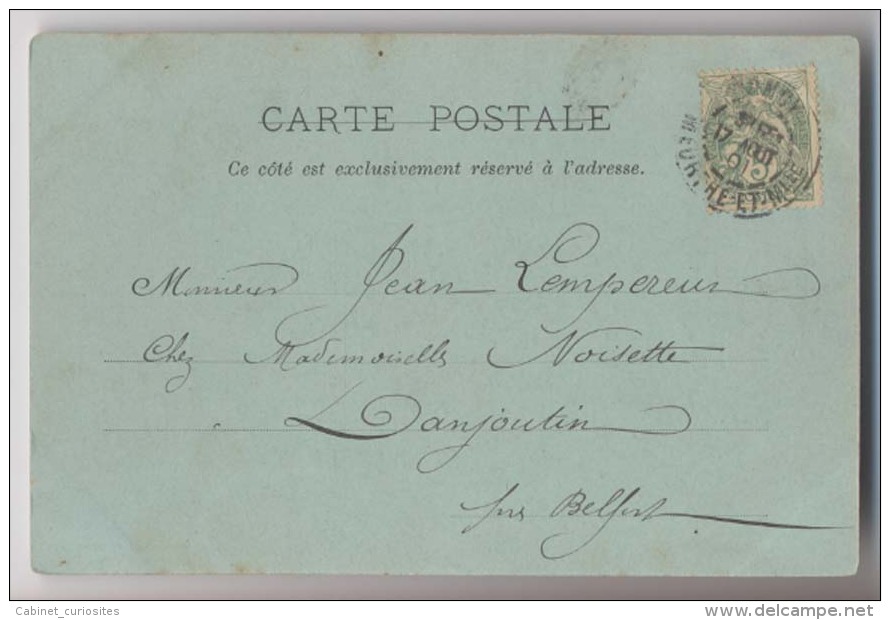 CARTE POSTALE
Ce côté est exclusivement réservé à l'adresse.
17 AOUT
MEURTHE-ET-MLLE
5
Monsieur Jean Lempereur
Chez Mademoiselle Noisette
Danjoutin
près Belfort
Cabinet_curiosites
delcampe.net